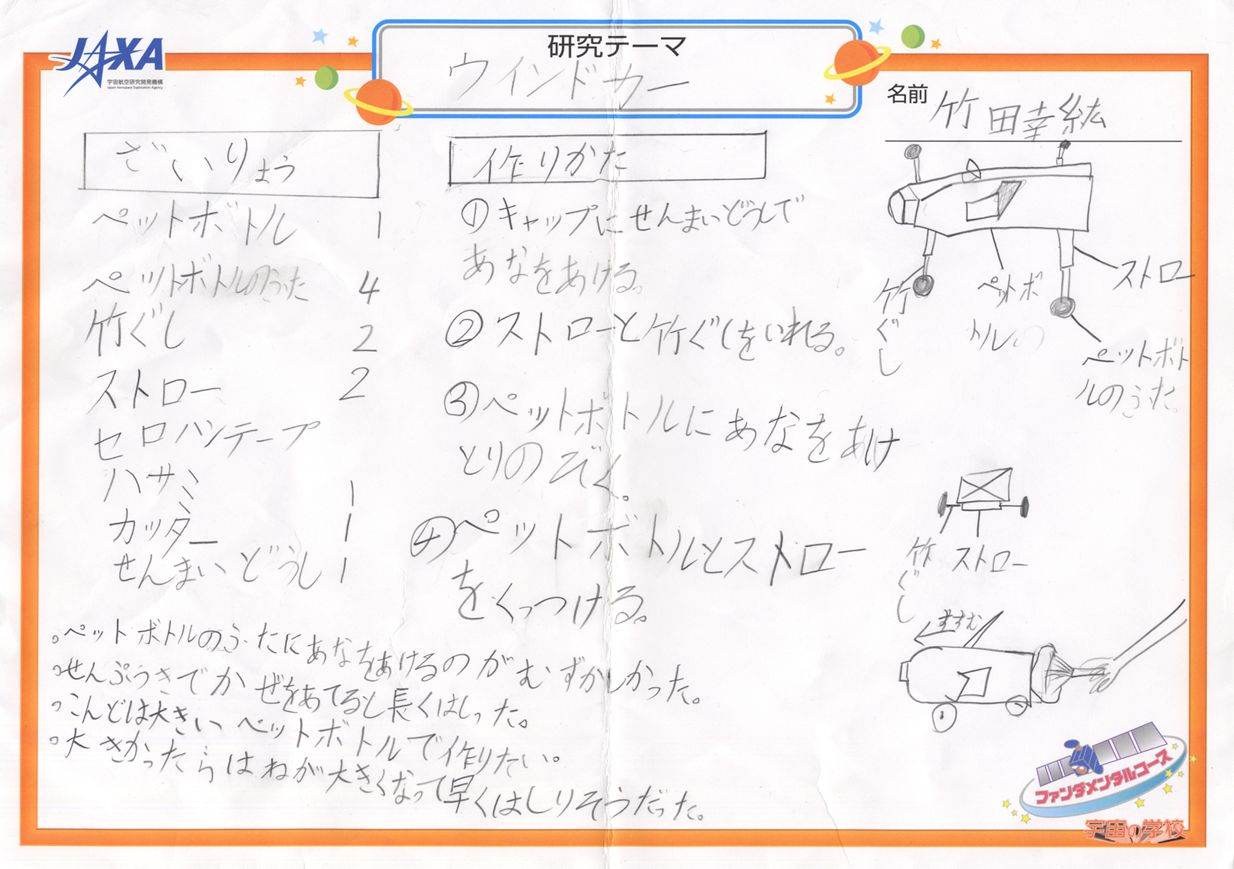 JAXA
宇宙航空研究開発機構
Japan Aerospace Exploration Agency
研究テーマ
ウインドカー
名前 竹田幸紘
ざいりょう
ペットボトル 1
ペットボトルのふた 4
竹ぐし 2
ストロー 2
セロハンテープ
ハサミ 1
カッター 1
せんまいどうし 1
作りかた
①キャップにせんまいどうしで
あなをあける。
②ストローと竹ぐしをいれる。
③ペットボトルにあなをあけ
とりのぞく。
④ペットボトルとストロー
をくっつける。
竹ぐし
ペットボ
トルの
ストロー
ペットボト
ルのふた。
竹ぐし
ストロー
すすむ
。ペットボトルのふたにあなをあけるのがむずかしかった。
。せんぷうきでかぜをあてると長くはしった。
。こんどは大きいペットボトルで作りたい。
。大きかったらはねが大きくなって早くはしりそうだった。
ファンダメンタルコース
宇宙の学校